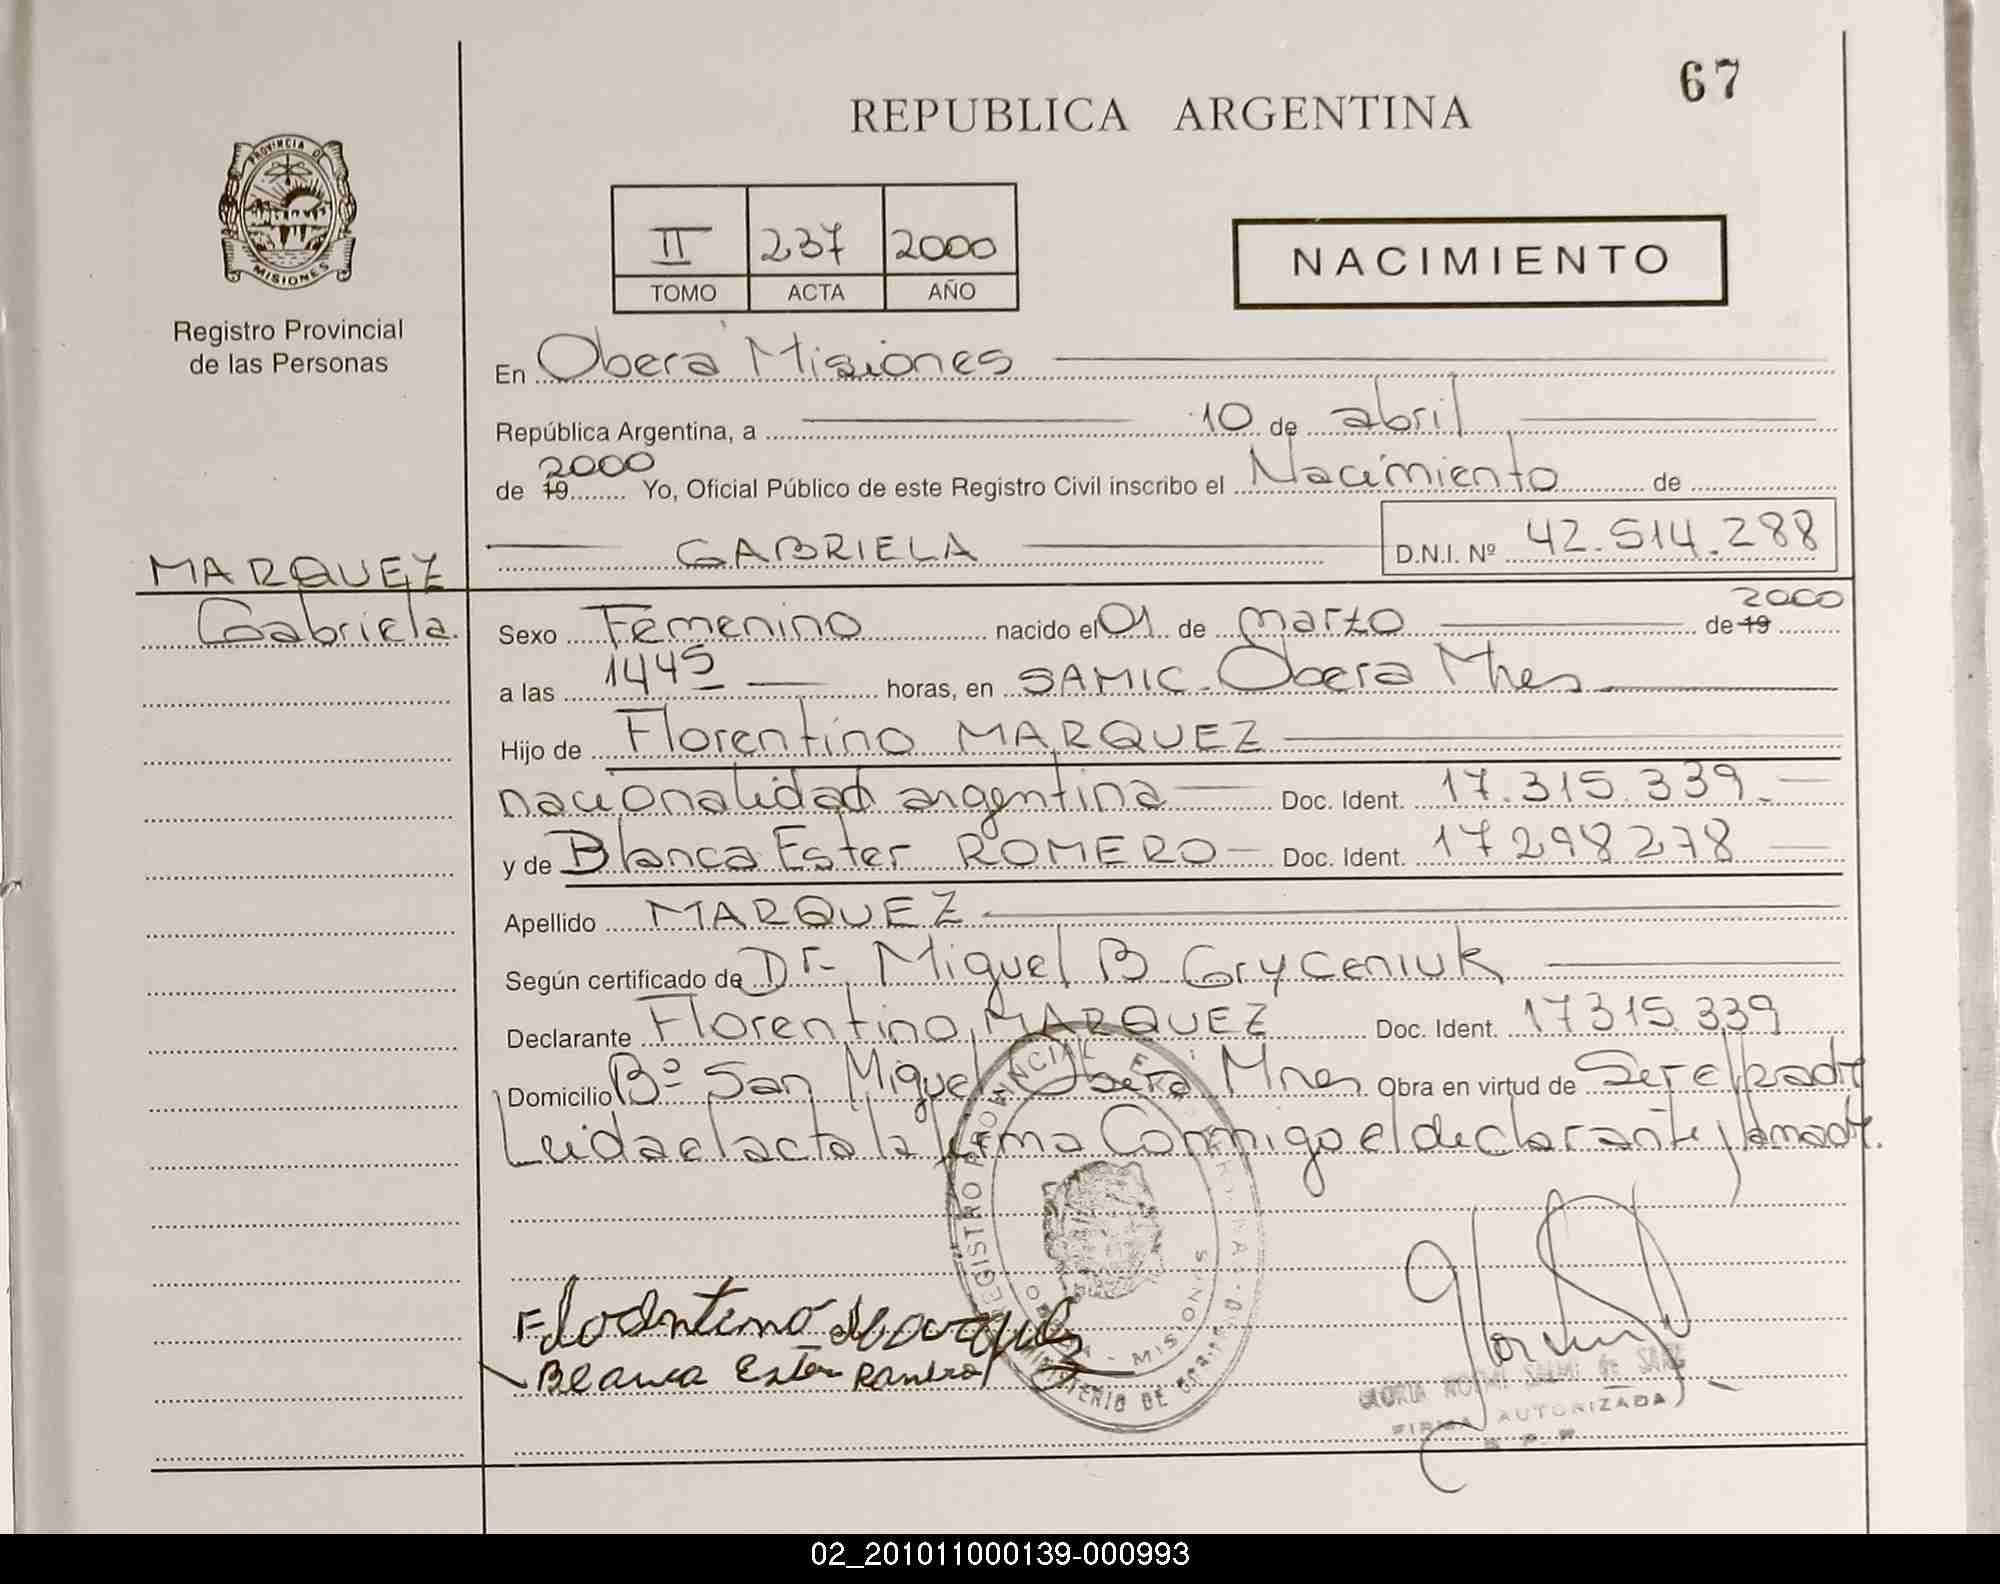 67
REPUBLICA ARGENTINA
PROVINCIA DE
MISIONES
Registro Provincial
de las Personas
II 237 2000
TOMO ACTA AÑO
NACIMIENTO
En Obera Misiones
República Argentina, a 10 de abril
2000
de 19 Yo, Oficial Público de este Registro Civil inscribo el Nacimiento de
GABRIELA D.N.I. Nº 42.514.288
MARQUEZ
Gabriela.
2000
Sexo Femenino nacido el 01 de marzo de 19
a las 1445 horas, en SAMIC. Obera Mnes
Hijo de Florentino MARQUEZ
nacionalidad argentina Doc. Ident. 17.315.339.
y de Blanca Ester ROMERO Doc. Ident. 17298278
Apellido MARQUEZ
Según certificado de Dr. Miguel B Gryceniuk
Declarante Florentino MARQUEZ Doc. Ident. 17315339
Domicilio Bº San Miguel Obera Mnes Obra en virtud de Ser el padre
Leida el acta la firma Conmigo el declarante y la madre.
REGISTRO PROVINCIAL
MISIONES
MINISTERIO DE
Florentino Marquez
Blanca Ester Romero
GLORIA NOEMI
FIRMA AUTORIZADA
02_201011000139-000993